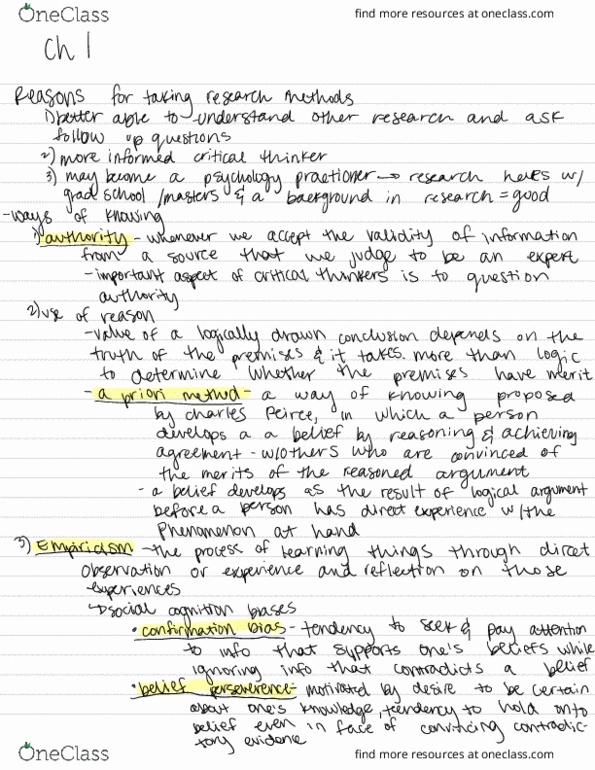 OneClass
find more resources at oneclass.com
Ch 1
Reasons for taking research methods
1) better able to understand other research and ask
follow up questions
2) more informed critical thinker
3) may become a psychology practioner → research helps w/
grad school /masters & a background in research = good
-ways of knowing
1) authority - whenever we accept the validity of information
from a source that we judge to be an expert
-important aspect of critical thinkers is to question
authority
2) use of reason
-value of a logically drawn conclusion depends on the
truth of the premises & it takes more than logic
to determine whether the premises have merit
- a priori method - a way of knowing proposed
by charles Peirce, in which a person
develops a a belief by reasoning & achieving
agreement - w/others who are convinced of
the merits of the reasoned argument
- a belief develops as the result of logical argument
before a person has direct experience w/the
Phenomenon at hand
3) Empiricism - the process of learning things through direct
observation or experience and reflection on those
experiences
↳ social cognition biases
• confirmation bias - tendency to seek & pay attention
to info that supports one's beliefs while
ignoring info that contradicts a belief
• belief perseverence - motivated by desire to be certain
about one's knowledge, tendency to hold onto
belief even in face of convicing contradic-
tory evidence
OneClass
find more resources at oneclass.com